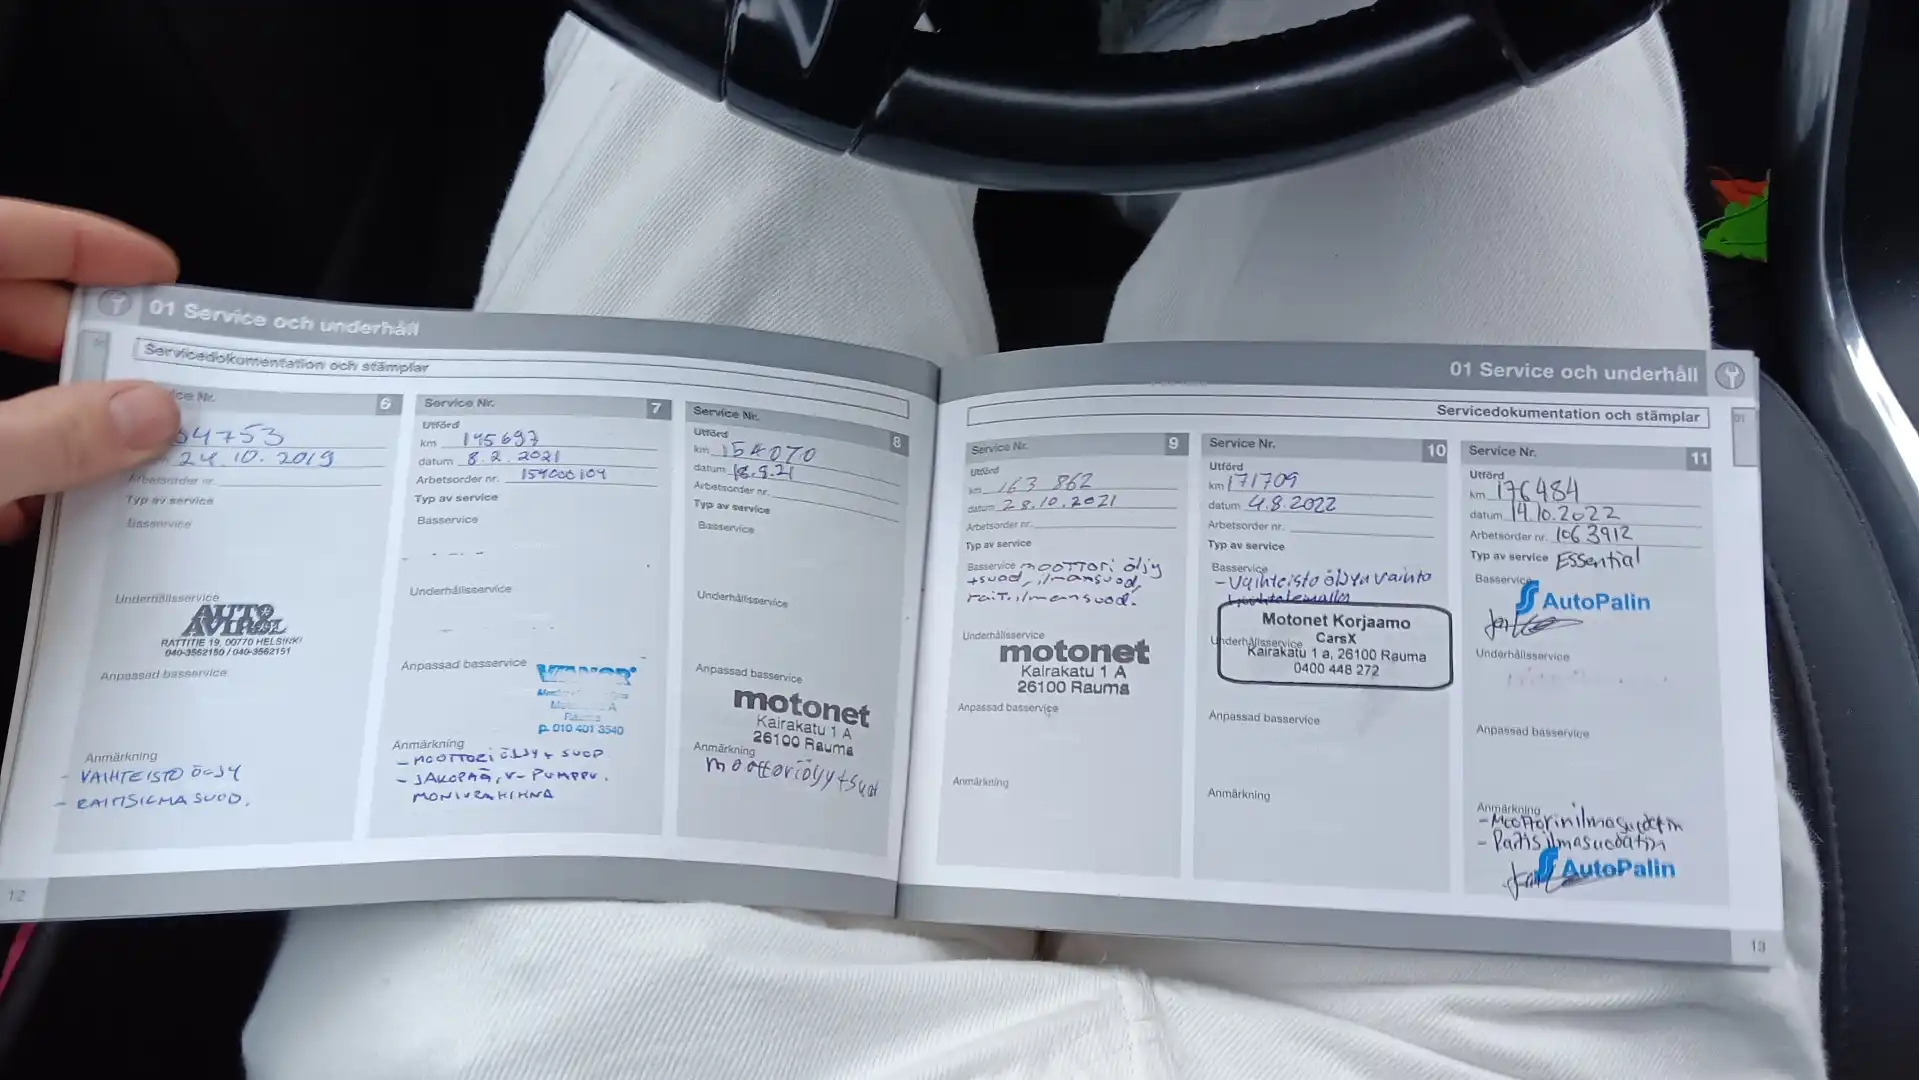 01 Service och underhåll
Servicedokumentation och stämplar
6
24.10.2019
Arbetsorder nr.
Typ av service
Basservice
Underhållsservice
AUTO
RATTITIE 19, 00770 HELSINKI
040-3562150 / 040-3562151
Anpassad basservice
Anmärkning
- VAIHTEISTO ÖLJY
- RAITISILMA SUOD.
12
Service Nr. 7
Utförd
km 145697
datum 8.2.2021
Arbetsorder nr. 154000104
Typ av service
Basservice
Underhållsservice
Anpassad basservice
VIANOR
Rauma
p. 010 401 3540
Anmärkning
- MOOTTORI ÖLJY + SUOD
- JAKOPÄÄ, V-PUMPPU.
MONIURAHIHNA
Service Nr. 8
Utförd
km 154070
datum 18.9.21
Arbetsorder nr.
Typ av service
Basservice
Underhållsservice
Anpassad basservice
motonet
Kairakatu 1 A
26100 Rauma
Anmärkning
moottoriöljy+suod
01 Service och underhåll
Servicedokumentation och stämplar
01
Service Nr. 9
Utförd
km 163 862
datum 28.10.2021
Arbetsorder nr.
Typ av service
Basservice moottori öljy
+suod, ilmansuod,
rait.ilmansuod.
Underhållsservice
motonet
Kairakatu 1 A
26100 Rauma
Anpassad basservice
Anmärkning
Service Nr. 10
Utförd
km 171709
datum 4.8.2022
Arbetsorder nr.
Typ av service
Basservice
- Vaihteisto öljyn vaihto
Motonet Korjaamo
CarsX
Underhållsservice
Kairakatu 1 a, 26100 Rauma
0400 448 272
Anpassad basservice
Anmärkning
Service Nr. 11
Utförd
km 176484
datum 14.10.2022
Arbetsorder nr. 1063912
Typ av service Essential
Basservice
AutoPalin
Underhållsservice
Anpassad basservice
Anmärkning
- Moottorinilmasuodatin
- Raitisilmasuodatin
AutoPalin
13